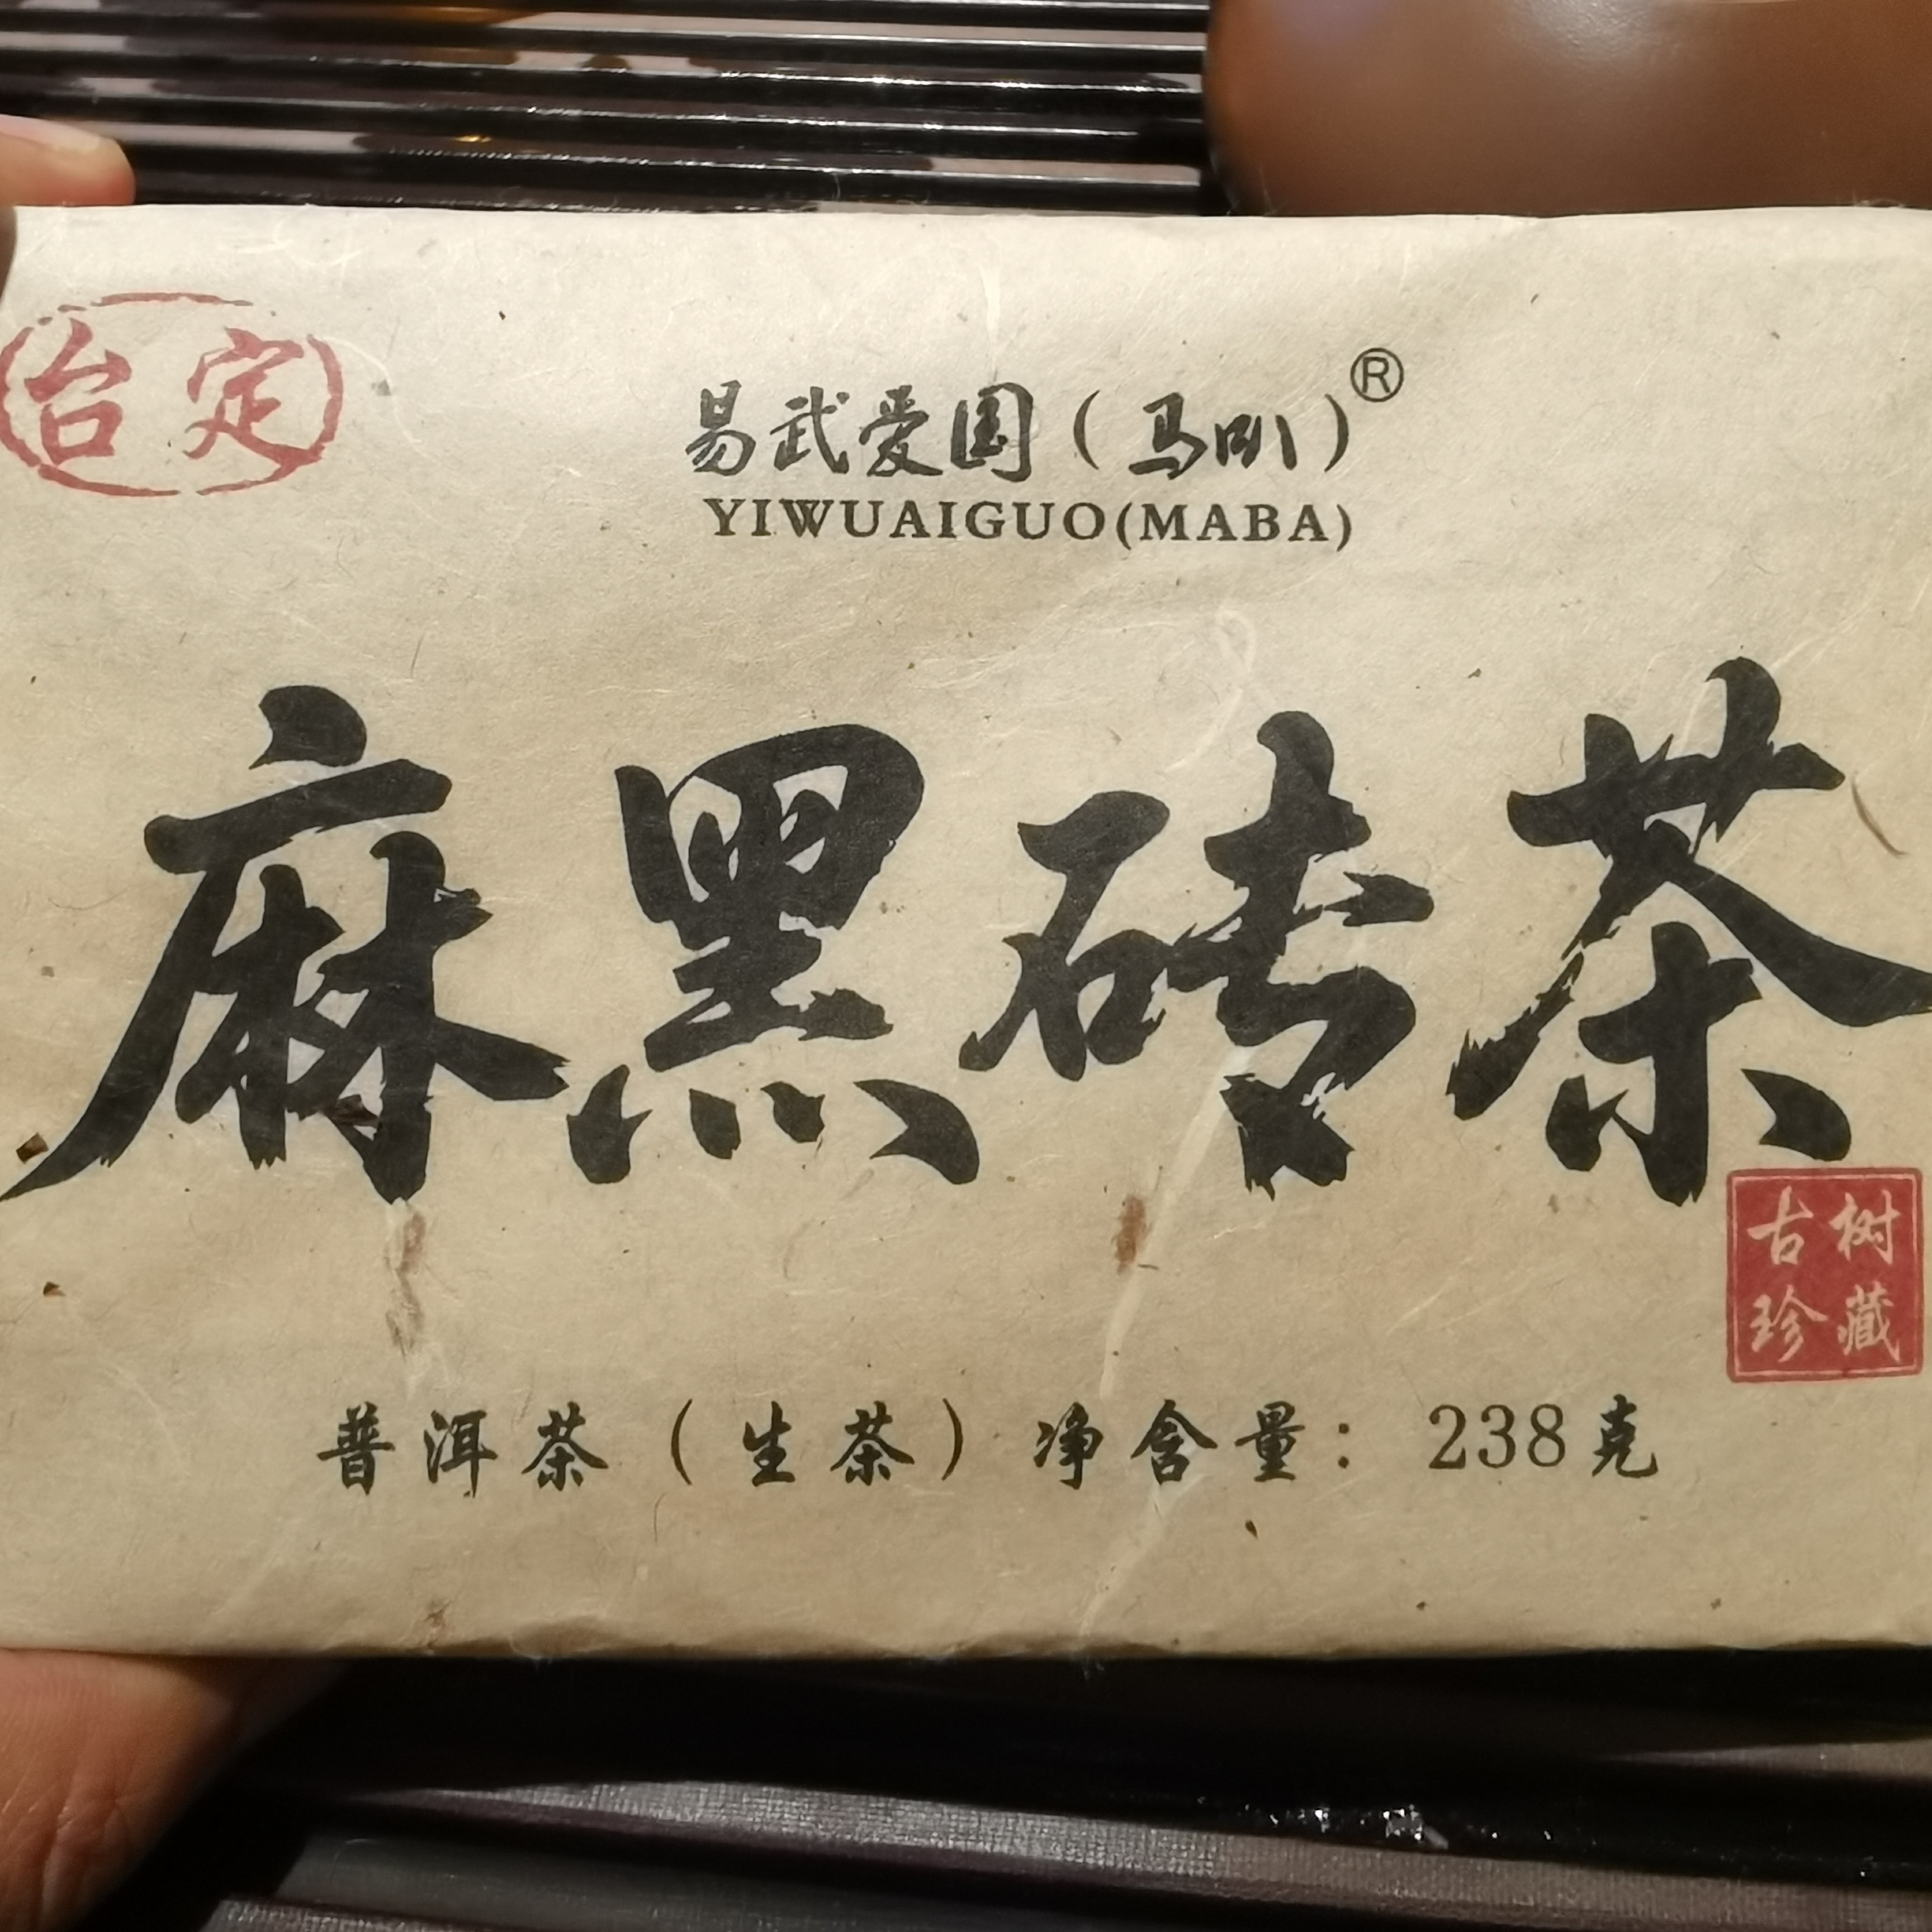 台定
易武爱国（马叭）®
YIWUAIGUO(MABA)
麻黑砖茶
古树
珍藏
普洱茶（生茶）净含量：238克